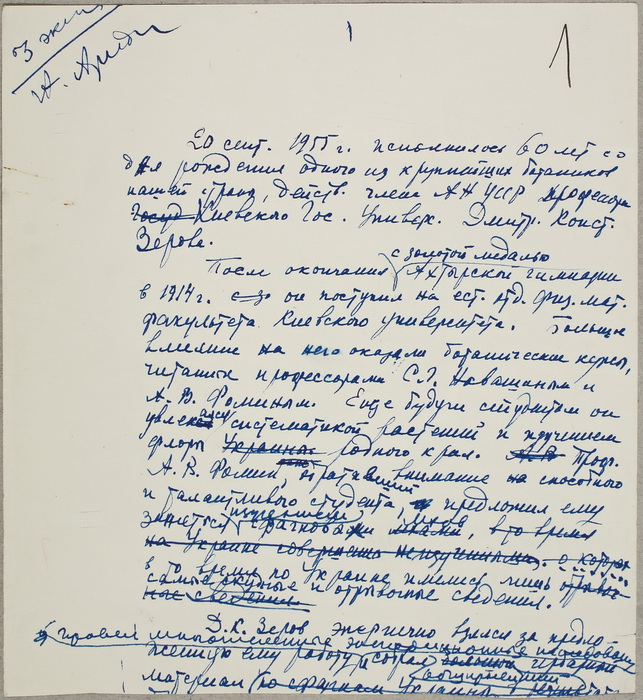 3 экз.
1
20 сент. 1955 г. исполнилось 60 лет со
дня рождения одного из крупнейших ботаников
нашей страны, действ. члена АН УССР профессора
Киевского Гос. Универ. Дмитр. Конст.
Зерова.
с золотой медалью
После окончания Ахтырской гимназии
в 1914 г. он поступил на ест. отд. физ. мат.
факультета Киевского университета. Большое
влияние на него оказали ботанические курсы,
читанные профессорами С. Г. Навашиным и
А. В. Фоминым. Еще будучи студентом он
увлекался систематикой растений и изучением
флоры Украины родного края. Проф.
А. В. Фомин, обративший внимание на способного
и талантливого студента, предложил ему
изучением мхов
заняться сфагновыми мхами, в то время
на Украине совершенно неизученными. о которых
в то время по Украине имелись лишь
самые скудные и отрывочные сведения.
сведения
Д. К. Зеров энергично взялся за предло-
провел многочисленные экспедиционные исследования
женную ему работу и собрал большой гербарный
обширнейший
материал по сфагнам Украины